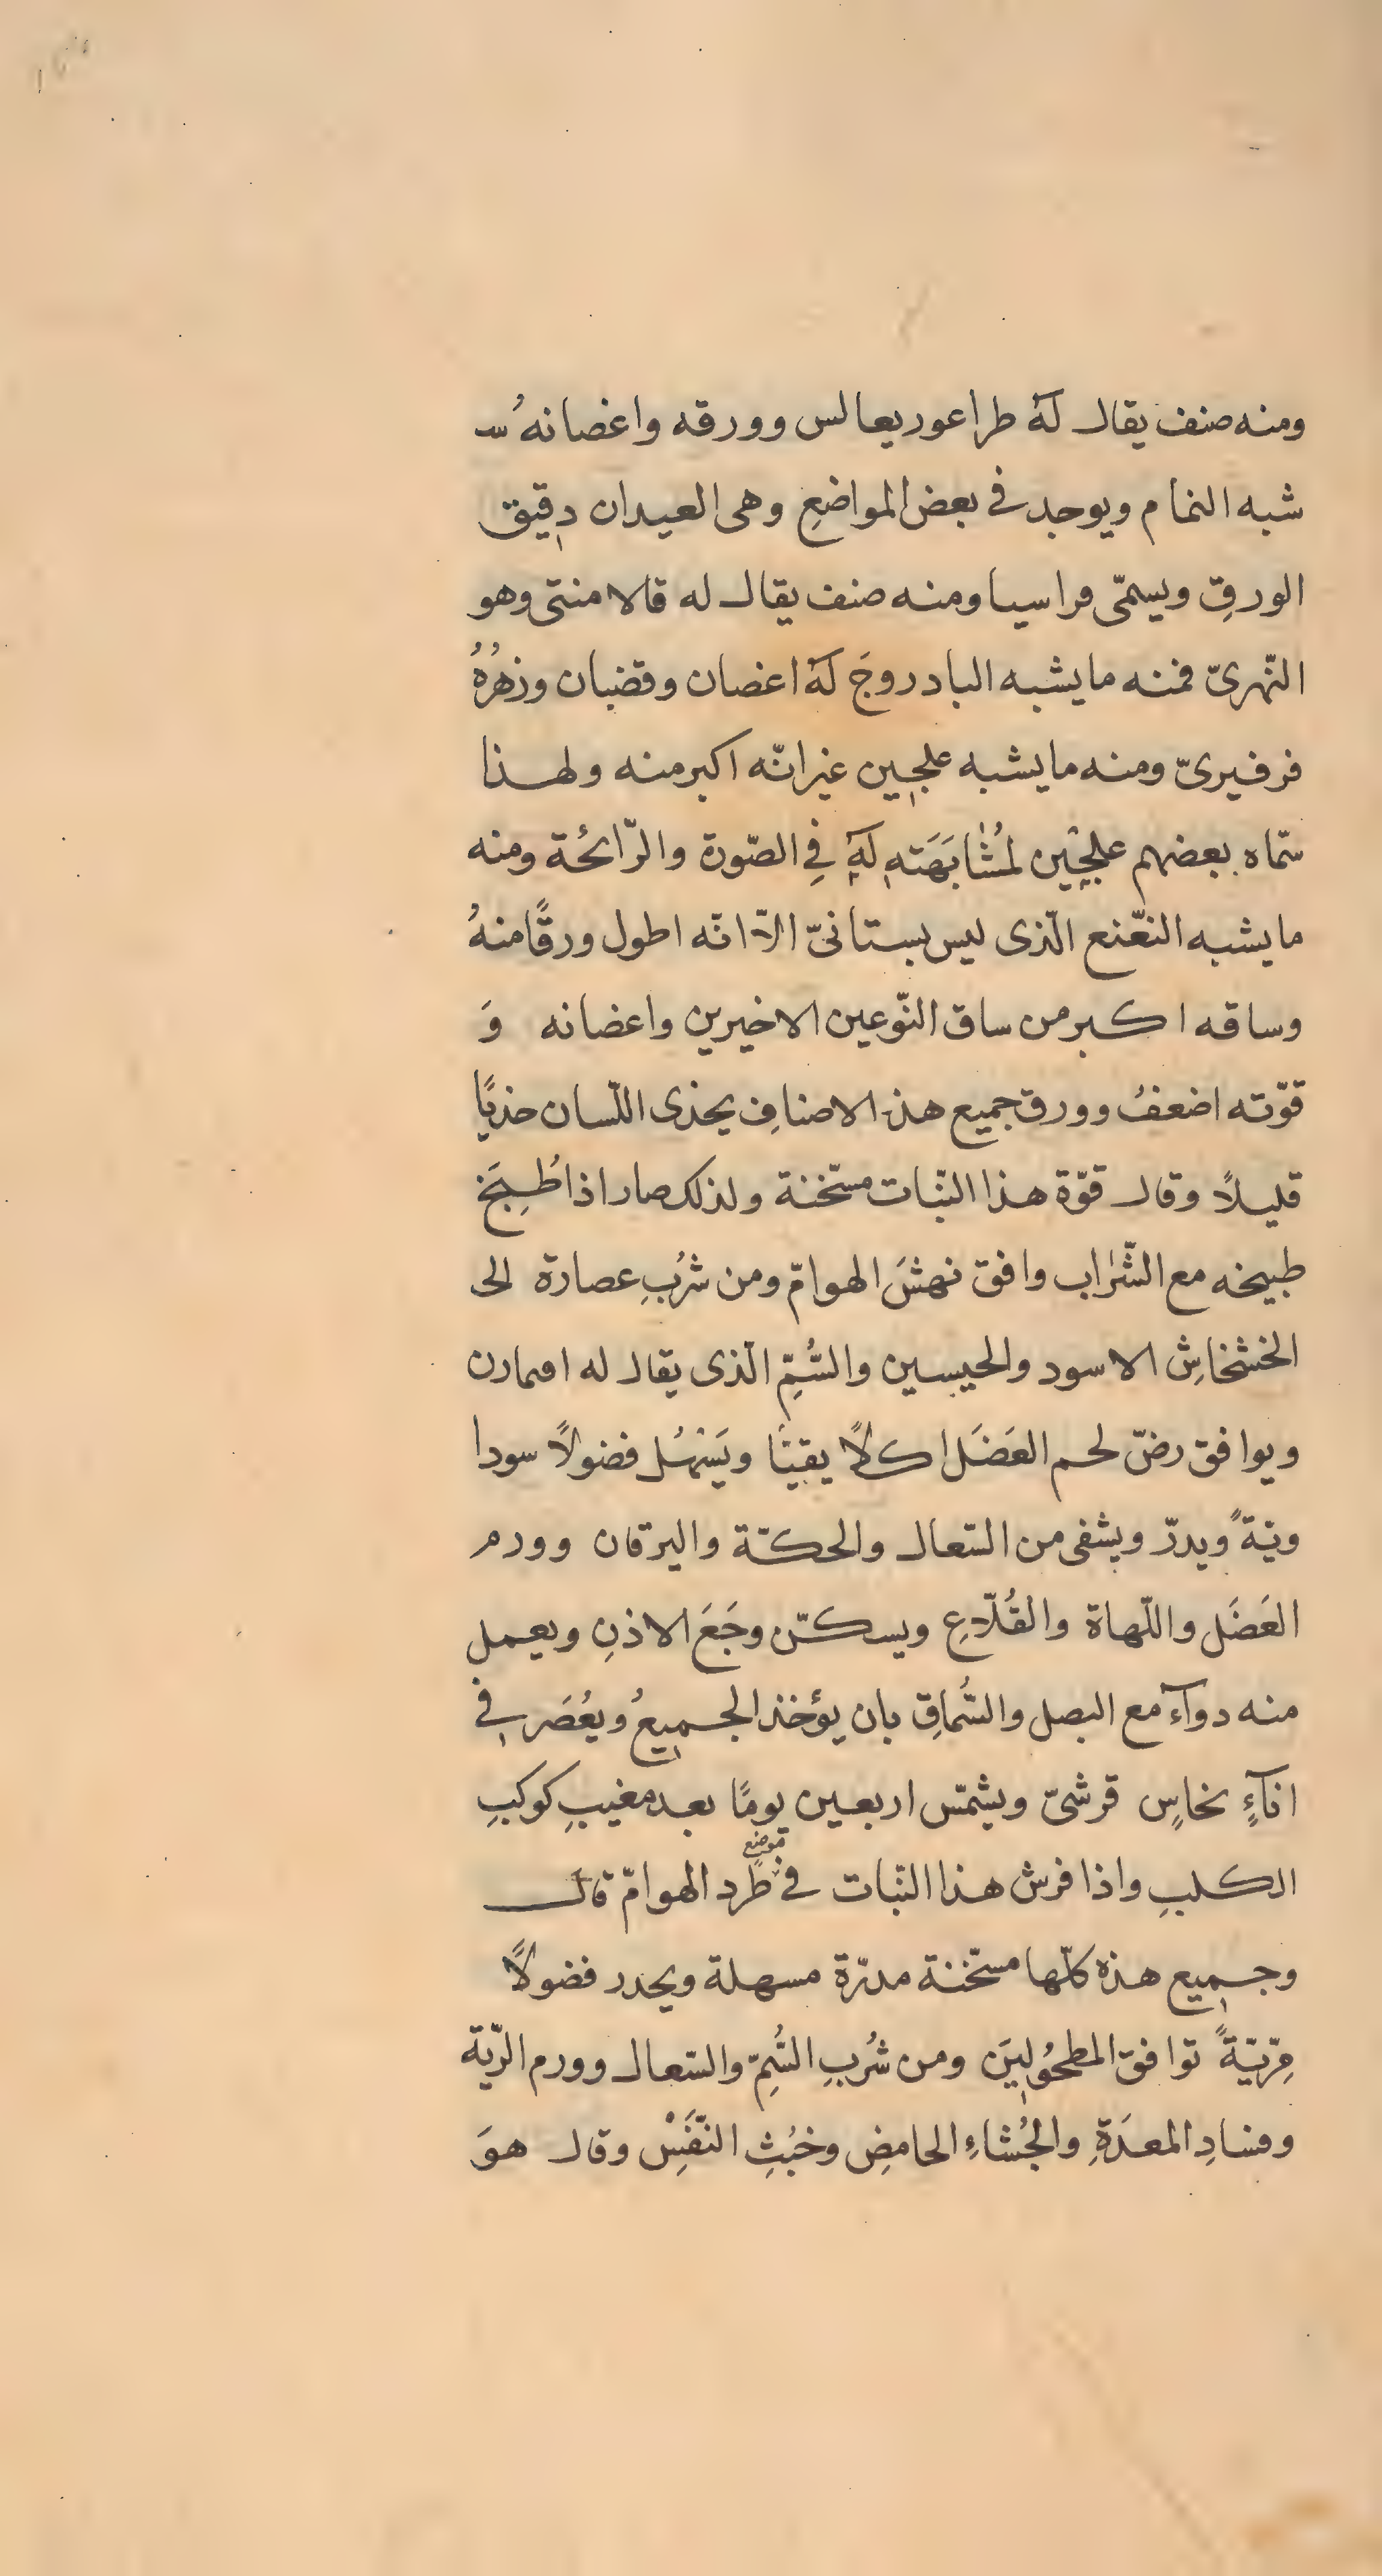 ومنه صنف يقال لهُ طراعوريعالس وورقه واغصانهُ
شبه النمام ويوجد فى بعض المواضعِ وهى العيدان دقيق
الورقِ ويسمّى مراسيا ومنه صنف يقال له قالا منتى وهو
النّهرىّ فمنه ما يشبه البادروجَ لهُ اغصان وقضبان وزهرُهُ
فرفيرىّ ومنه ما يشبه علجين غير انّه اكبر منه ولهذا
سمّاه بعضهم علجين لمُشٰابَهَتهِ لهُ فِى الصّورة والرّائحة ومنه
ما يشبه النعّنع الّذى ليس بستانىّ الاّ انّه اطول ورقًا منهُ
وساقه اكبر من ساق النّوعين الاخيرين واعضانه وَ
قوّته اضعفُ وورق جميع هذه الاصنافِ يحذى اللّسان حذيًا
قليلاً وقال قوّة هذا النّبات مسّخنة ولذلك صار اذا طُبِخَ
طبيخه مع الشّرٰاب وافق نهشَ الهوامّ ومن شرُبِ عصارة الى
الخشخاشِ الاسود والحيسين والسُّمِّ الّذى يقال له اڡمارن
ويوافق رضّ لحم العَضَل اكلاً يقينًا ويَسْهُل فضولاً سودا
ويّةً ويدرّ ويشفى من السّعال والحكّة واليرقان وورم
العَضَل واللّهاة والقُلّاعِ ويسكّن وجَعَ الاذنِ ويعمل
منه دوآء مع البصل والسُّماقِ بان يؤخذ الجميعُ ويعُصَر فى
انآءٍ نحاسٍ قرشىّ ويشمّس اربعين يومًا بعد مغيبِ كوكبِ
الكلبِ واذا فرش هذا النّبات فى موضع طرد الهوامّ قال
وجميع هذه كلّها مسّخنة مدرّة مسهلة ويحدر فضولاً
مِرّيّةً توافق المطحُولِينَ ومن شُربِ السُّمِّ والسّعال وورم الرّية
وفسادِ المعدَةِ والجُشاءِ الحامضِ وخبُثِ النّفَسِْ وقال هوَ